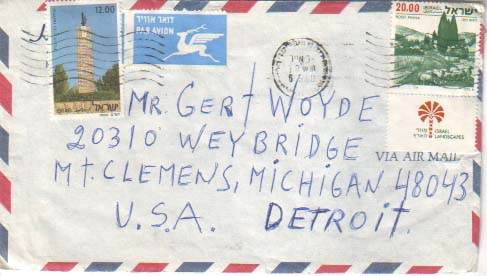 12.00
דואר אוויר
PAR AVION
20.00
ISRAEL
ישראל
ISRAEL
ישראל
נוף
הארץ
ISRAEL
LANDSCAPES
VIA AIR MAIL
MR. GERT WOYDE
20310 WEYBRIDGE
MT. CLEMENS, MICHIGAN 48043
U.S.A. DETROIT.